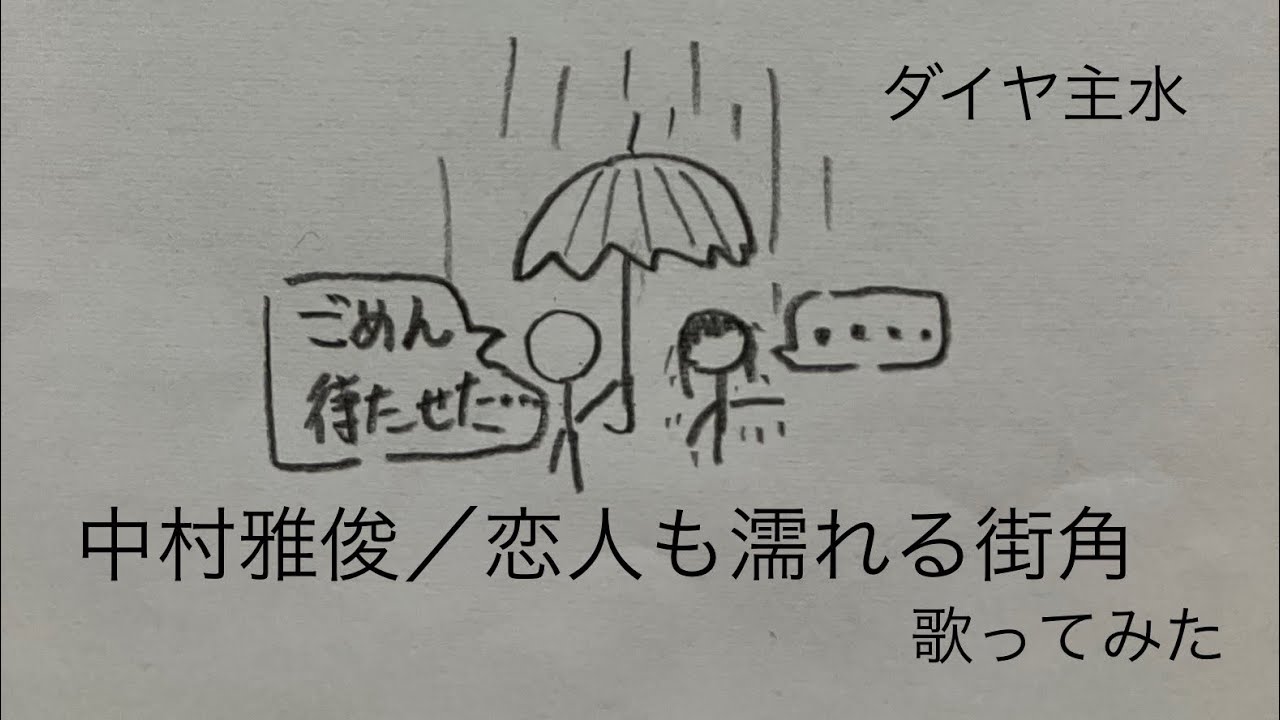 ダイヤ主水
ごめん
待たせた…
・・・・
中村雅俊／恋人も濡れる街角
歌ってみた